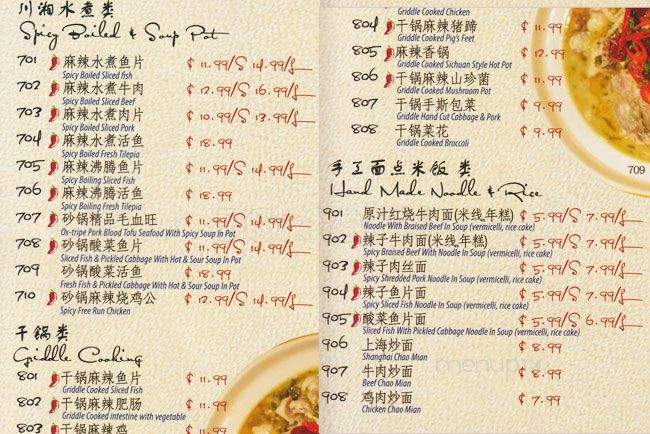 川湘水煮类
Spicy Boiled & Soup Pot
701 麻辣水煮鱼片 ¢ 11.99/S 14.99/L
Spicy Boiled Sliced fish
702 麻辣水煮牛肉 ¢ 12.99/S 16.99/L
Spicy Boiled Sliced Beef
703 麻辣水煮肉片 ¢ 10.99/S 13.99/L
Spicy Boiled Sliced Pork
704 麻辣水煮活鱼 ¢ 18.99
Spicy Boiled Fresh Tilepia
705 麻辣沸腾鱼片 ¢ 11.99/S 14.99/L
Spicy Boiling Sliced Fish
706 麻辣沸腾活鱼 ¢ 18.99
Spicy Boiling Fresh Tilepia
707 砂锅精品毛血旺 ¢ 11.99/S 14.99/L
Ox-tripe Pork Blood Tofu Seafood With Spicy Soup In Pot
708 砂锅酸菜鱼片 ¢ 11.99/S 14.99/L
Sliced Fish & Pickled Cabbage With Hot & Sour Soup In Pot
709 砂锅酸菜活鱼 ¢ 18.99
Fresh Fish & Pickled Cabbage With Hot & Sour Soup In Pot
710 砂锅麻辣烧鸡公 ¢ 12.99/S 14.99/L
Spicy Free Run Chicken
干锅类
Griddle Cooking
801 干锅麻辣鱼片 ¢ 11.99
Griddle Cooked Sliced Fish
802 干锅麻辣肥肠 ¢ 11.99
Griddle Cooked intestine with vegetable
803 干锅麻辣鸡 ¢ 11.99
Griddle Cooked Chicken
804 干锅麻辣猪蹄 ¢ 11.99
Griddle Cooked Pig's Feet
805 麻辣香锅 ¢ 12.99
Griddle Cooked Sichuan Style Hot Pot
806 干锅麻辣山珍菌 ¢ 11.99
Griddle Cooked Mushroom Pot
807 干锅手斯包菜 ¢ 9.99
Griddle Hand Cut Cabbage & Pork
808 干锅菜花 ¢ 9.99
Griddle Cooked Broccoli
709
手工面点米饭类
Hand Made Noodle & Rice
901 原汁红烧牛肉面(米线年糕) ¢ 5.99/S 7.99/L
Noodle With Braised Beef In Soup (vermicelli, rice cake)
902 辣子牛肉面(米线年糕) ¢ 5.99/S 7.99/L
Spicy Braised Beef With Noodle In Soup (vermicelli, rice cake)
903 辣子肉丝面 ¢ 5.99/S 7.99/L
Spicy Shredded Pork Noodle In Soup (vermicelli, rice cake)
904 辣子鱼片面 ¢ 5.99/S 7.99/L
Spicy Sliced Fish Noodle In Soup (vermicelli, rice cake)
905 酸菜鱼片面 ¢ 5.99/S 6.99/L
Sliced Fish With Pickled Cabbage Noodle In Soup (vermicelli, rice cake)
906 上海炒面 ¢ 8.99
Shanghai Chao Mian
907 牛肉炒面 ¢ 8.99
Beef Chao Mian
908 鸡肉炒面 ¢ 7.99
Chicken Chao Mian